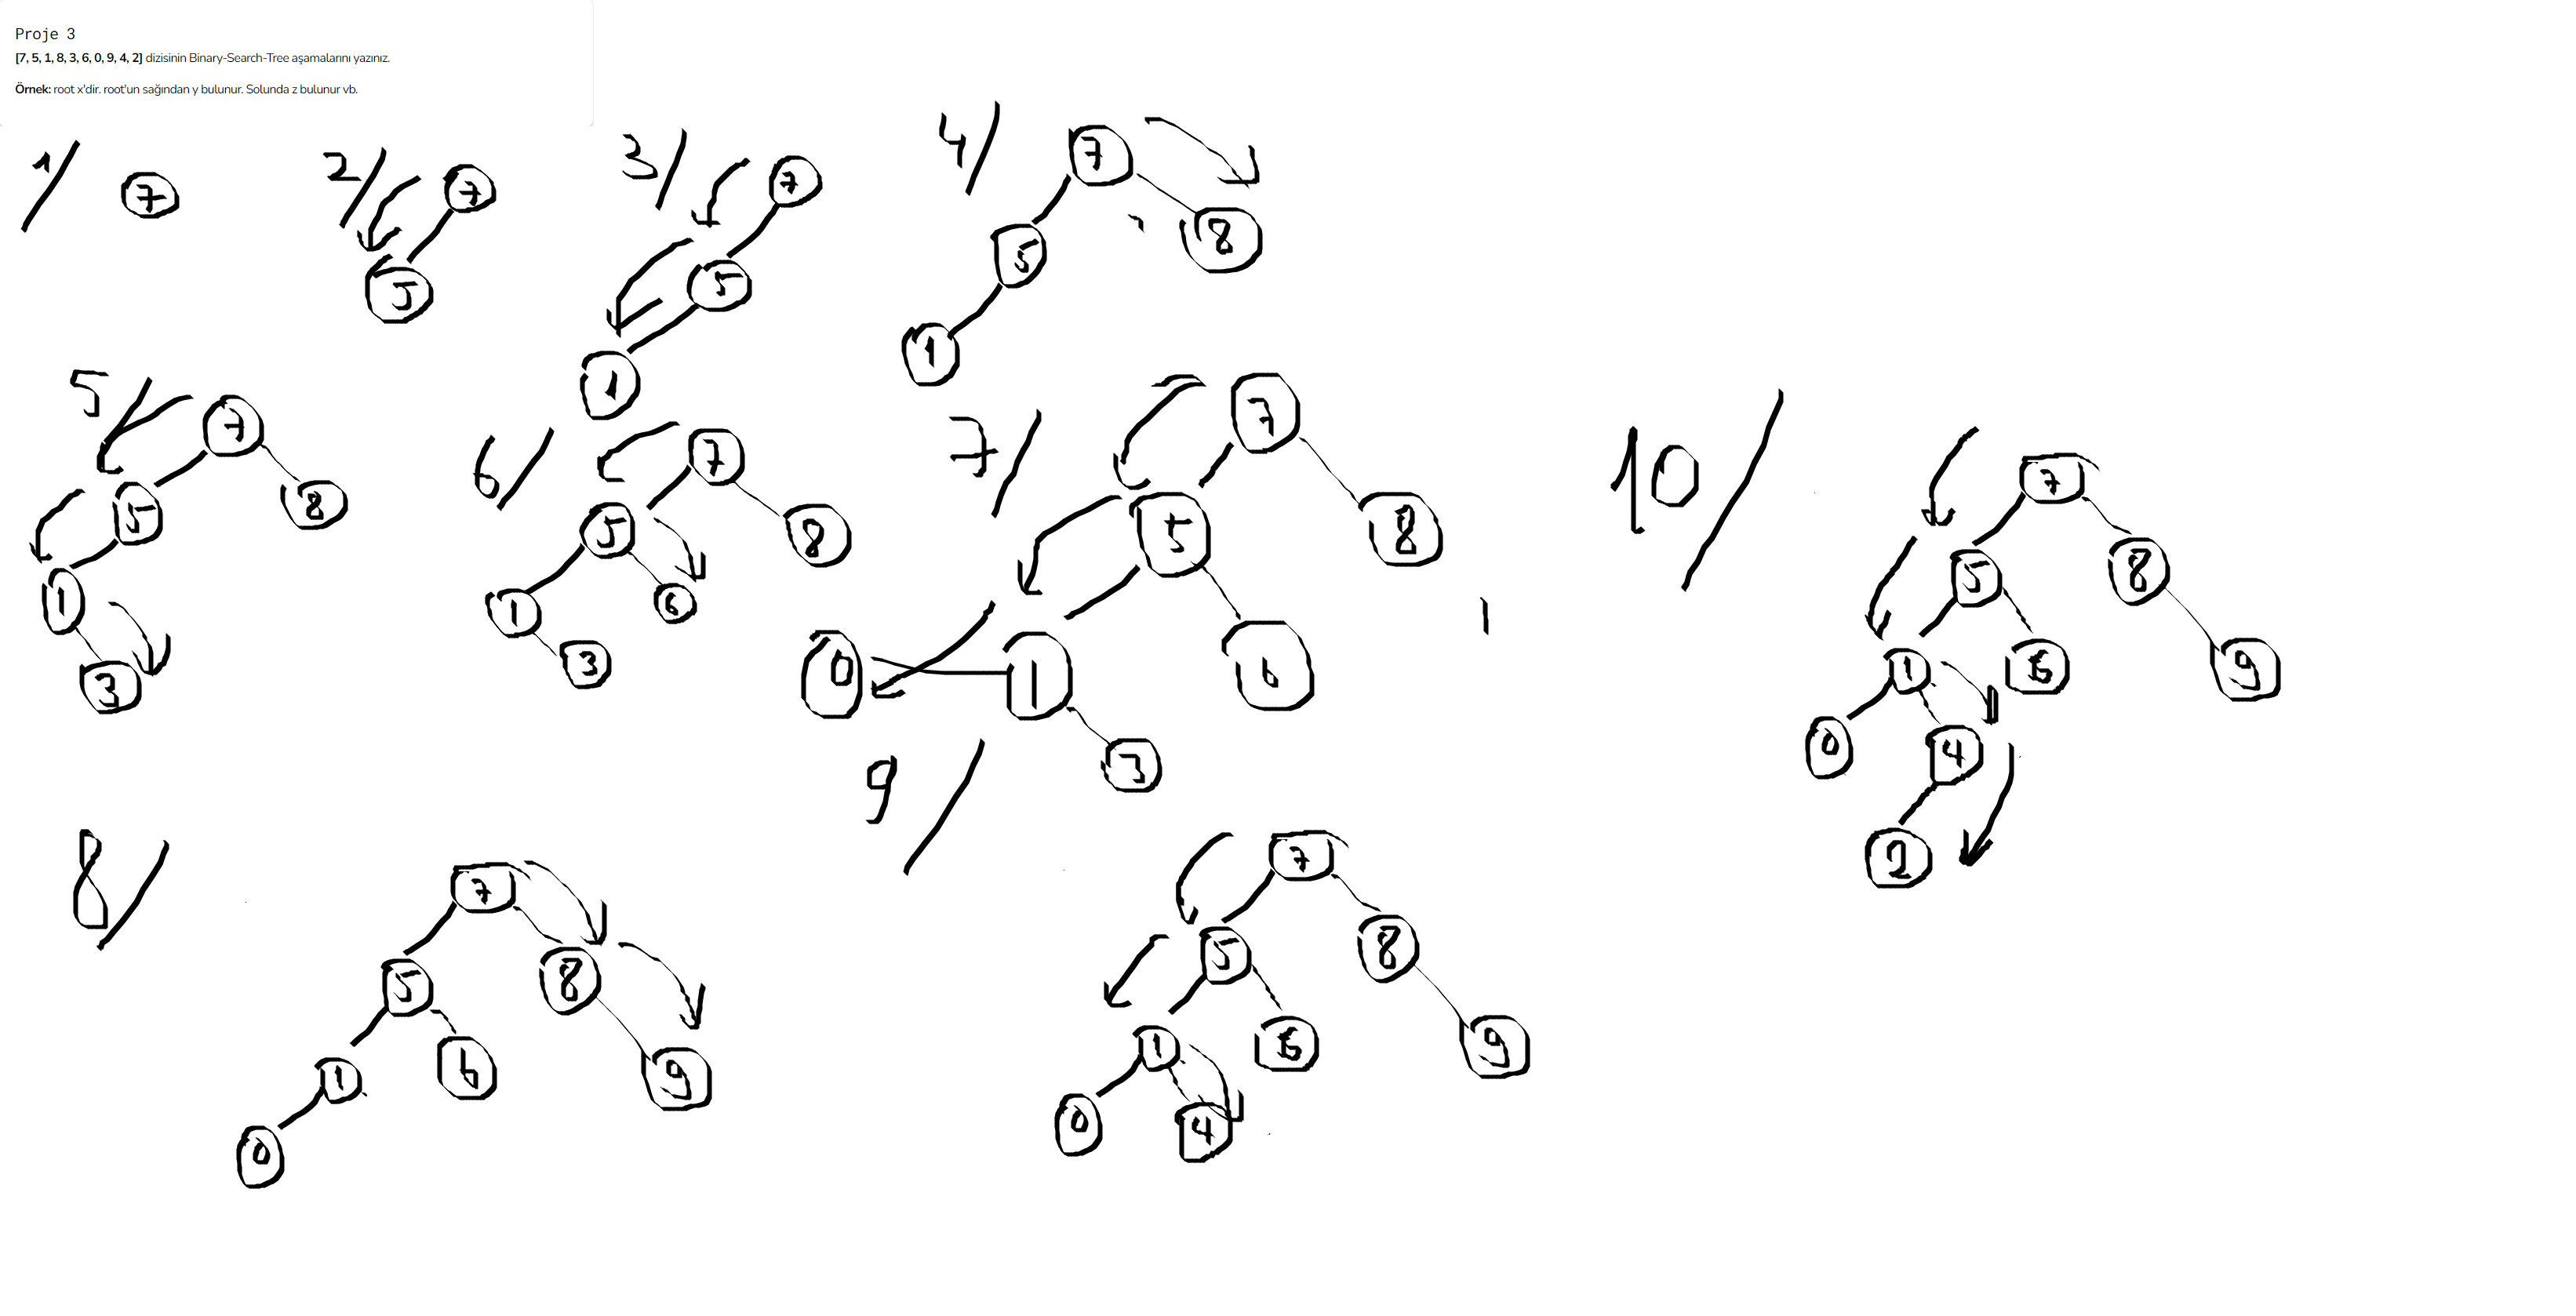 Proje 3
[7, 5, 1, 8, 3, 6, 0, 9, 4, 2] dizisinin Binary-Search-Tree aşamalarını yazınız.
Örnek: root x'dir. root'un sağından y bulunur. Solunda z bulunur vb.
1/
7
2/
7
5
3/
7
5
1
4/
7
5
8
1
5/
7
5
8
1
3
6/
7
5
8
1
6
3
7/
7
5
8
0
1
6
3
8/
7
5
8
1
6
9
0
9/
7
5
8
1
6
9
0
4
10/
7
5
8
1
6
9
0
4
2